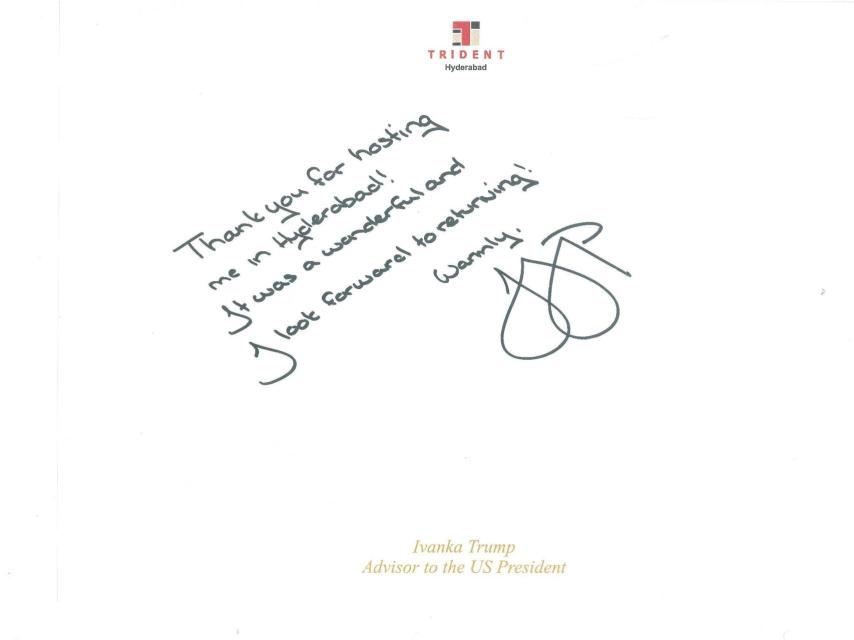 TRIDENT
Hyderabad
Thank you for hosting
me in Hyderabad!
It was a wonderful and
I look forward to returning!
Warmly.
Ivanka Trump
Advisor to the US President